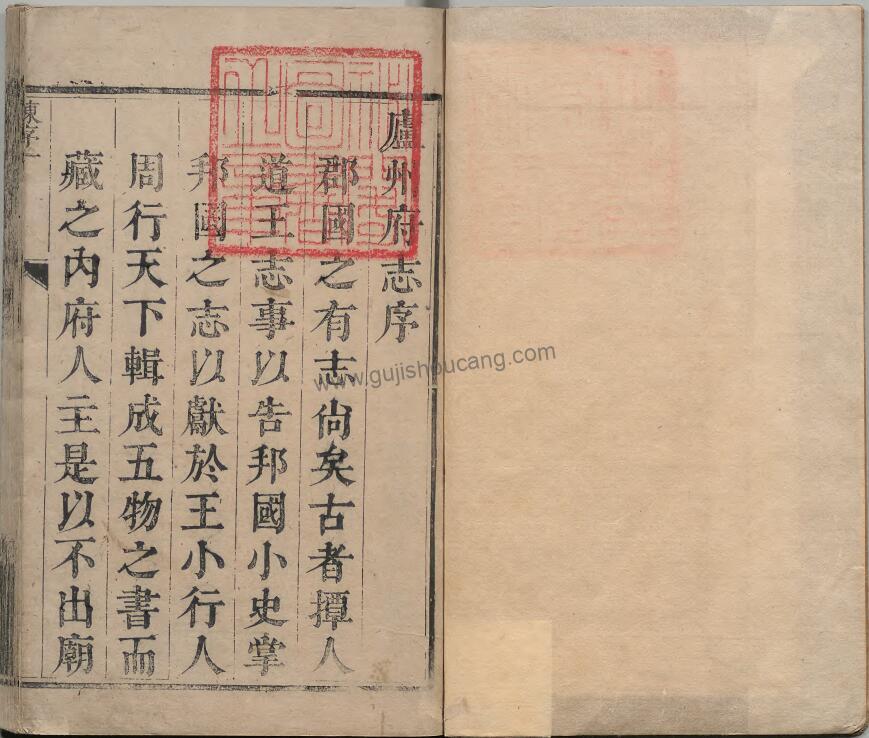 廬州府志序
郡國之有志尙矣古者撢人
道王志事以告邦國小史掌
邦國之志以獻於王小行人
周行天下輯成五物之書而
藏之內府人主是以不出廟
陳序一
www.gujishoucang.com